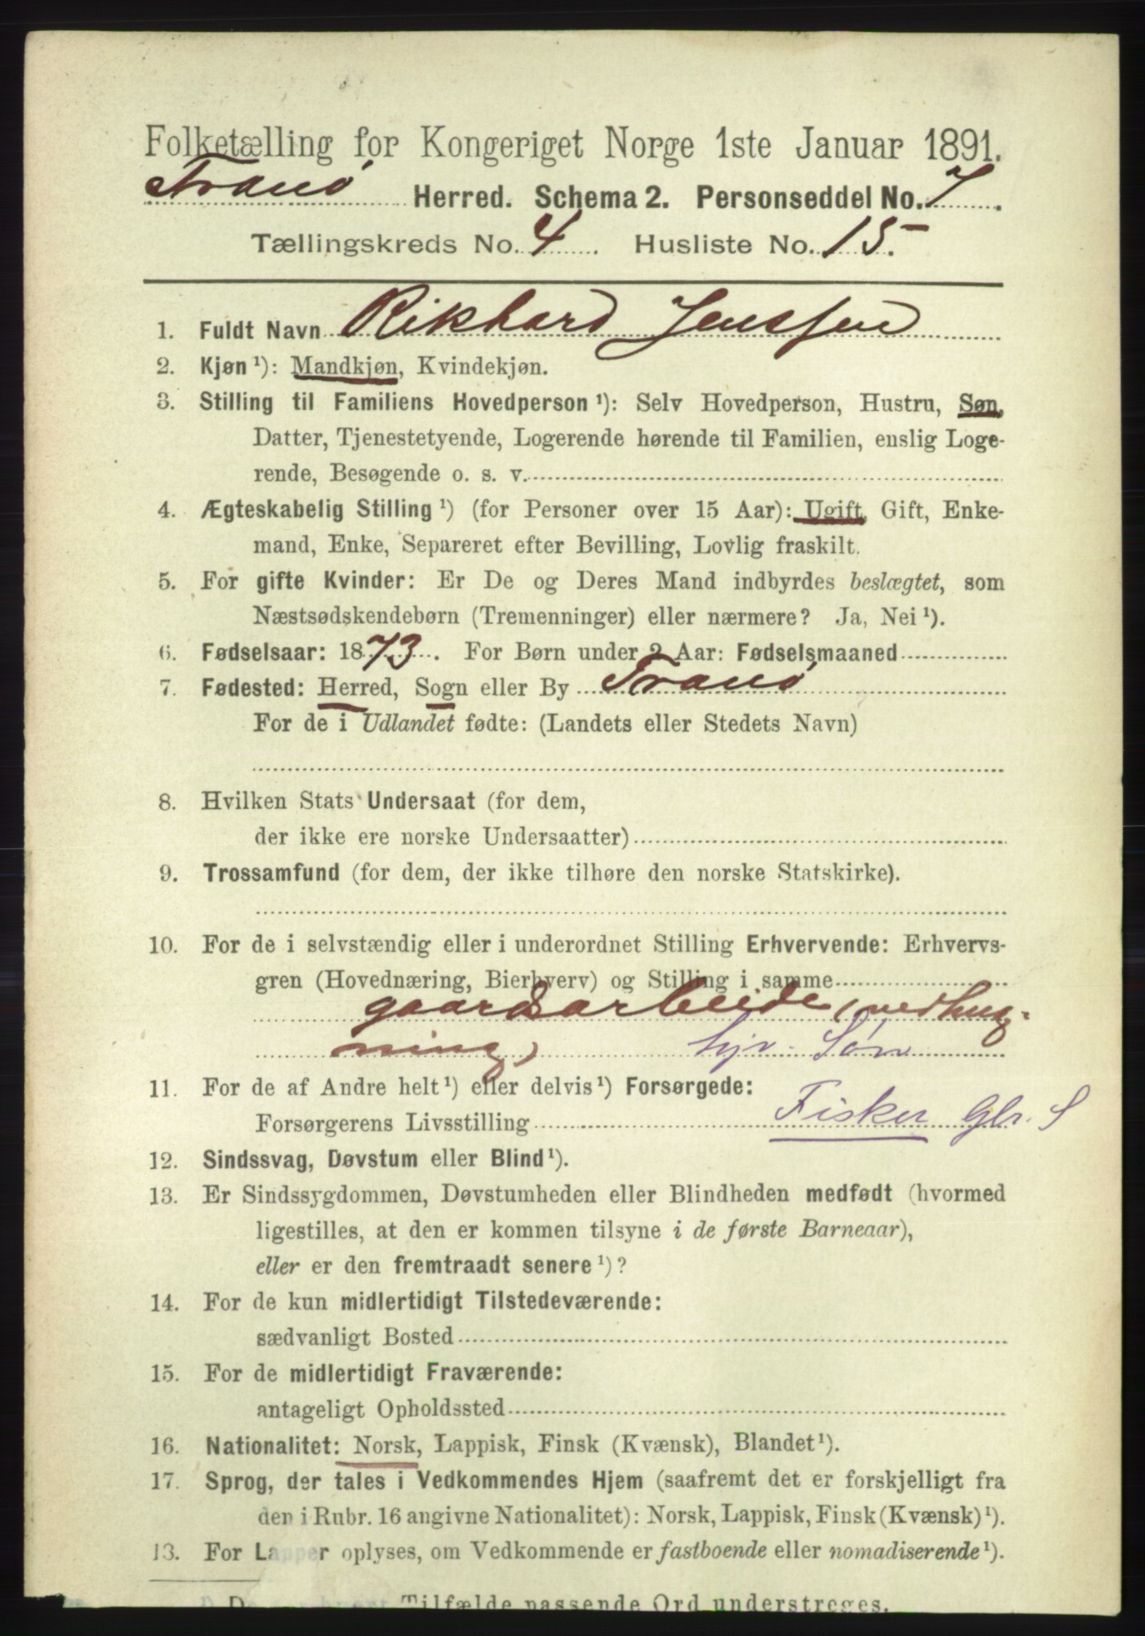 Folketælling for Kongeriget Norge 1ste Januar 1891.
Tranø Herred. Schema 2. Personseddel No. 7.
Tællingskreds No. 4. Husliste No. 15.
1. Fuldt Navn Rikhard Jenssen
2. Kjøn ¹): Mandkjøn, Kvindekjøn.
3. Stilling til Familiens Hovedperson ¹): Selv Hovedperson, Hustru, Søn,
Datter, Tjenestetyende, Logerende hørende til Familien, enslig Loge-
rende, Besøgende o. s. v.
4. Ægteskabelig Stilling ¹) (for Personer over 15 Aar): Ugift, Gift, Enke-
mand, Enke, Separeret efter Bevilling, Lovlig fraskilt.
5. For gifte Kvinder: Er De og Deres Mand indbyrdes beslægtet, som
Næstsødskendebørn (Tremenninger) eller nærmere? Ja, Nei ¹).
6. Fødselsaar: 1873. For Børn under 2 Aar: Fødselsmaaned
7. Fødested: Herred, Sogn eller By Tranø
For de i Udlandet fødte: (Landets eller Stedets Navn)
8. Hvilken Stats Undersaat (for dem,
der ikke ere norske Undersaatter)
9. Trossamfund (for dem, der ikke tilhøre den norske Statskirke).
10. For de i selvstændig eller i underordnet Stilling Erhvervende: Erhvervs-
gren (Hovednæring, Bierhverv) og Stilling i samme
gaardsarbeide, (vedhug-
ning) hjv. Søn
11. For de af Andre helt ¹) eller delvis ¹) Forsørgede:
Forsørgerens Livsstilling Fisker Gbr. S
12. Sindssvag, Døvstum eller Blind ¹).
13. Er Sindssygdommen, Døvstumheden eller Blindheden medfødt (hvormed
ligestilles, at den er kommen tilsyne i de første Barneaar),
eller er den fremtraadt senere ¹)?
14. For de kun midlertidigt Tilstedeværende:
sædvanligt Bosted
15. For de midlertidigt Fraværende:
antageligt Opholdssted
16. Nationalitet: Norsk, Lappisk, Finsk (Kvænsk), Blandet ¹).
17. Sprog, der tales i Vedkommendes Hjem (saafremt det er forskjelligt fra
den i Rubr. 16 angivne Nationalitet): Norsk, Lappisk, Finsk (Kvænsk) ¹).
13. For Lapper oplyses, om Vedkommende er fastboende eller nomadiserende ¹).
Tilfælde passende Ord understreges.